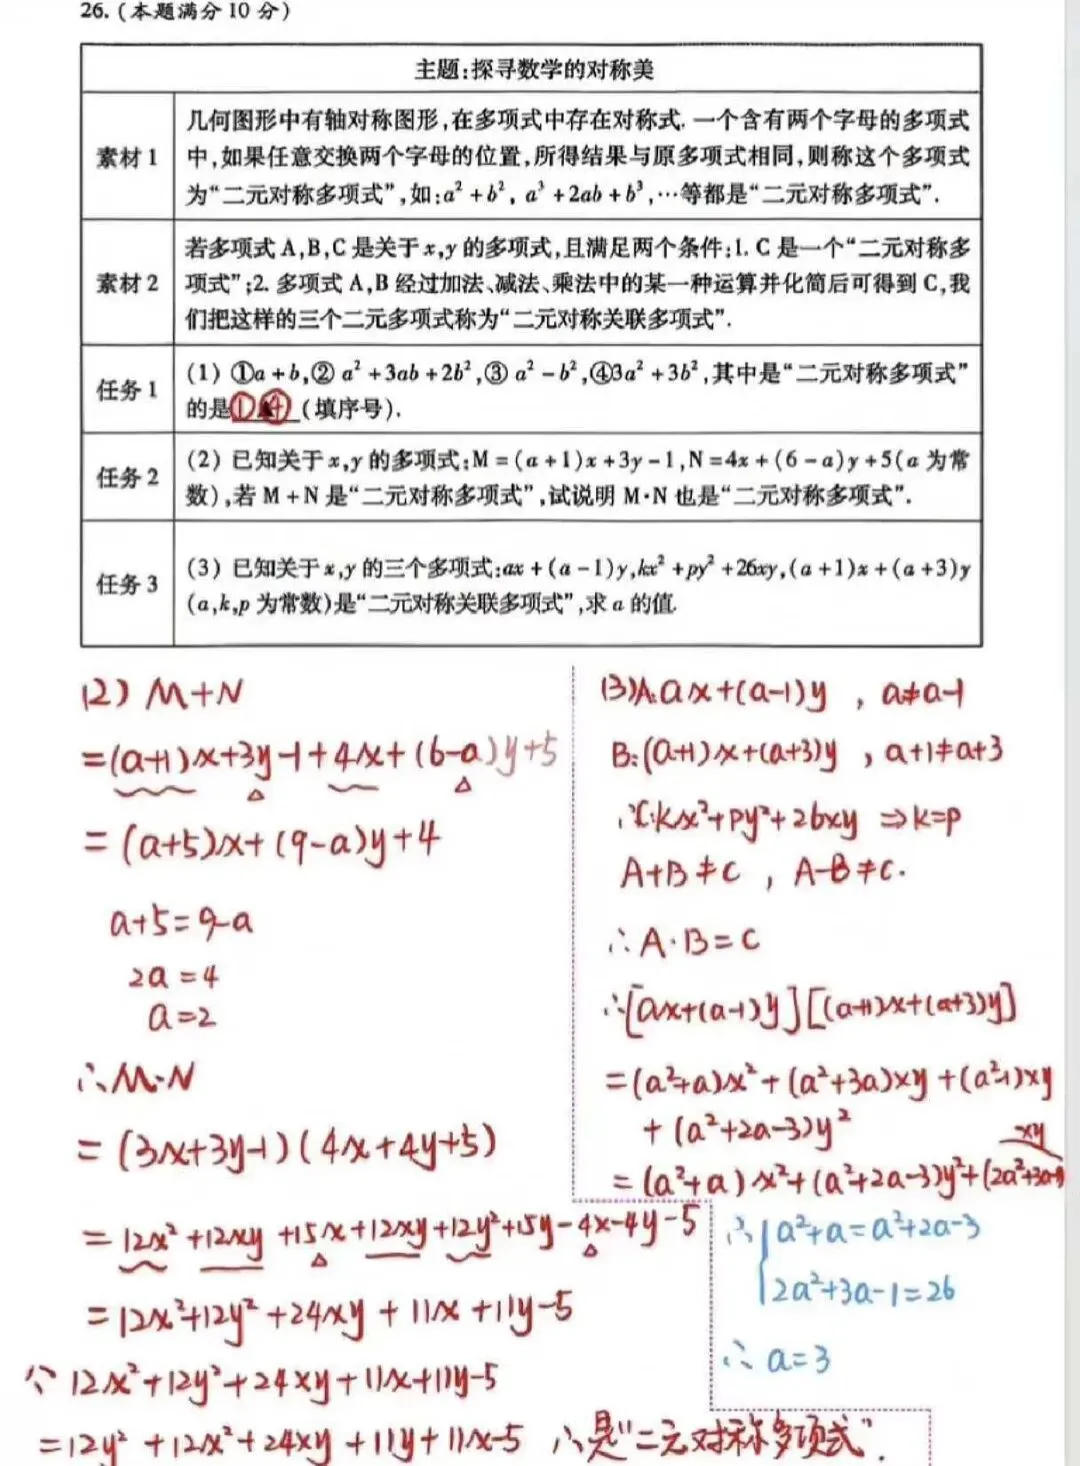 26. (本题满分 10 分)
主题:探寻数学的对称美
素材 1
几何图形中有轴对称图形,在多项式中存在对称式. 一个含有两个字母的多项式
中,如果任意交换两个字母的位置,所得结果与原多项式相同,则称这个多项式
为“二元对称多项式”,如:a²+b², a³+2ab+b³,…等都是“二元对称多项式”.
素材 2
若多项式 A,B,C 是关于 x,y 的多项式,且满足两个条件:1. C 是一个“二元对称多
项式”;2. 多项式 A,B 经过加法、减法、乘法中的某一种运算并化简后可得到 C,我
们把这样的三个二元多项式称为“二元对称关联多项式”.
任务 1
(1) ①a+b,② a²+3ab+2b²,③ a²-b²,④3a²+3b²,其中是“二元对称多项式”
的是①④(填序号).
任务 2
(2) 已知关于 x,y 的多项式:M=(a+1)x+3y-1,N=4x+(6-a)y+5(a 为常
数),若 M+N 是“二元对称多项式”,试说明 M·N 也是“二元对称多项式”.
任务 3
(3) 已知关于 x,y 的三个多项式:ax+(a-1)y,kx²+py²+26xy,(a+1)x+(a+3)y
(a,k,p 为常数)是“二元对称关联多项式”,求 a 的值.
(2) M+N
=(a+1)x+3y-1+4x+(6-a)y+5
=(a+5)x+(9-a)y+4
a+5=9-a
2a=4
a=2
∴M·N
=(3x+3y-1)(4x+4y+5)
=12x²+12xy+15x+12xy+12y²+15y-4x-4y-5
=12x²+12y²+24xy+11x+11y-5
∵12x²+12y²+24xy+11x+11y-5
=12y²+12x²+24xy+11y+11x-5 ∴是“二元对称多项式”.
(3)A:ax+(a-1)y , a≠a-1
B:(a+1)x+(a+3)y , a+1≠a+3
∴C:kx²+py²+26xy ⇒k=p
A+B≠C , A-B≠C.
∴A·B=C
∴[ax+(a-1)y][(a+1)x+(a+3)y]
=(a²+a)x²+(a²+3a)xy+(a²-1)xy
+(a²+2a-3)y²
xy
=(a²+a)x²+(a²+2a-3)y²+(2a²+3a-1)
∴{a²+a=a²+2a-3
2a²+3a-1=26
∴a=3